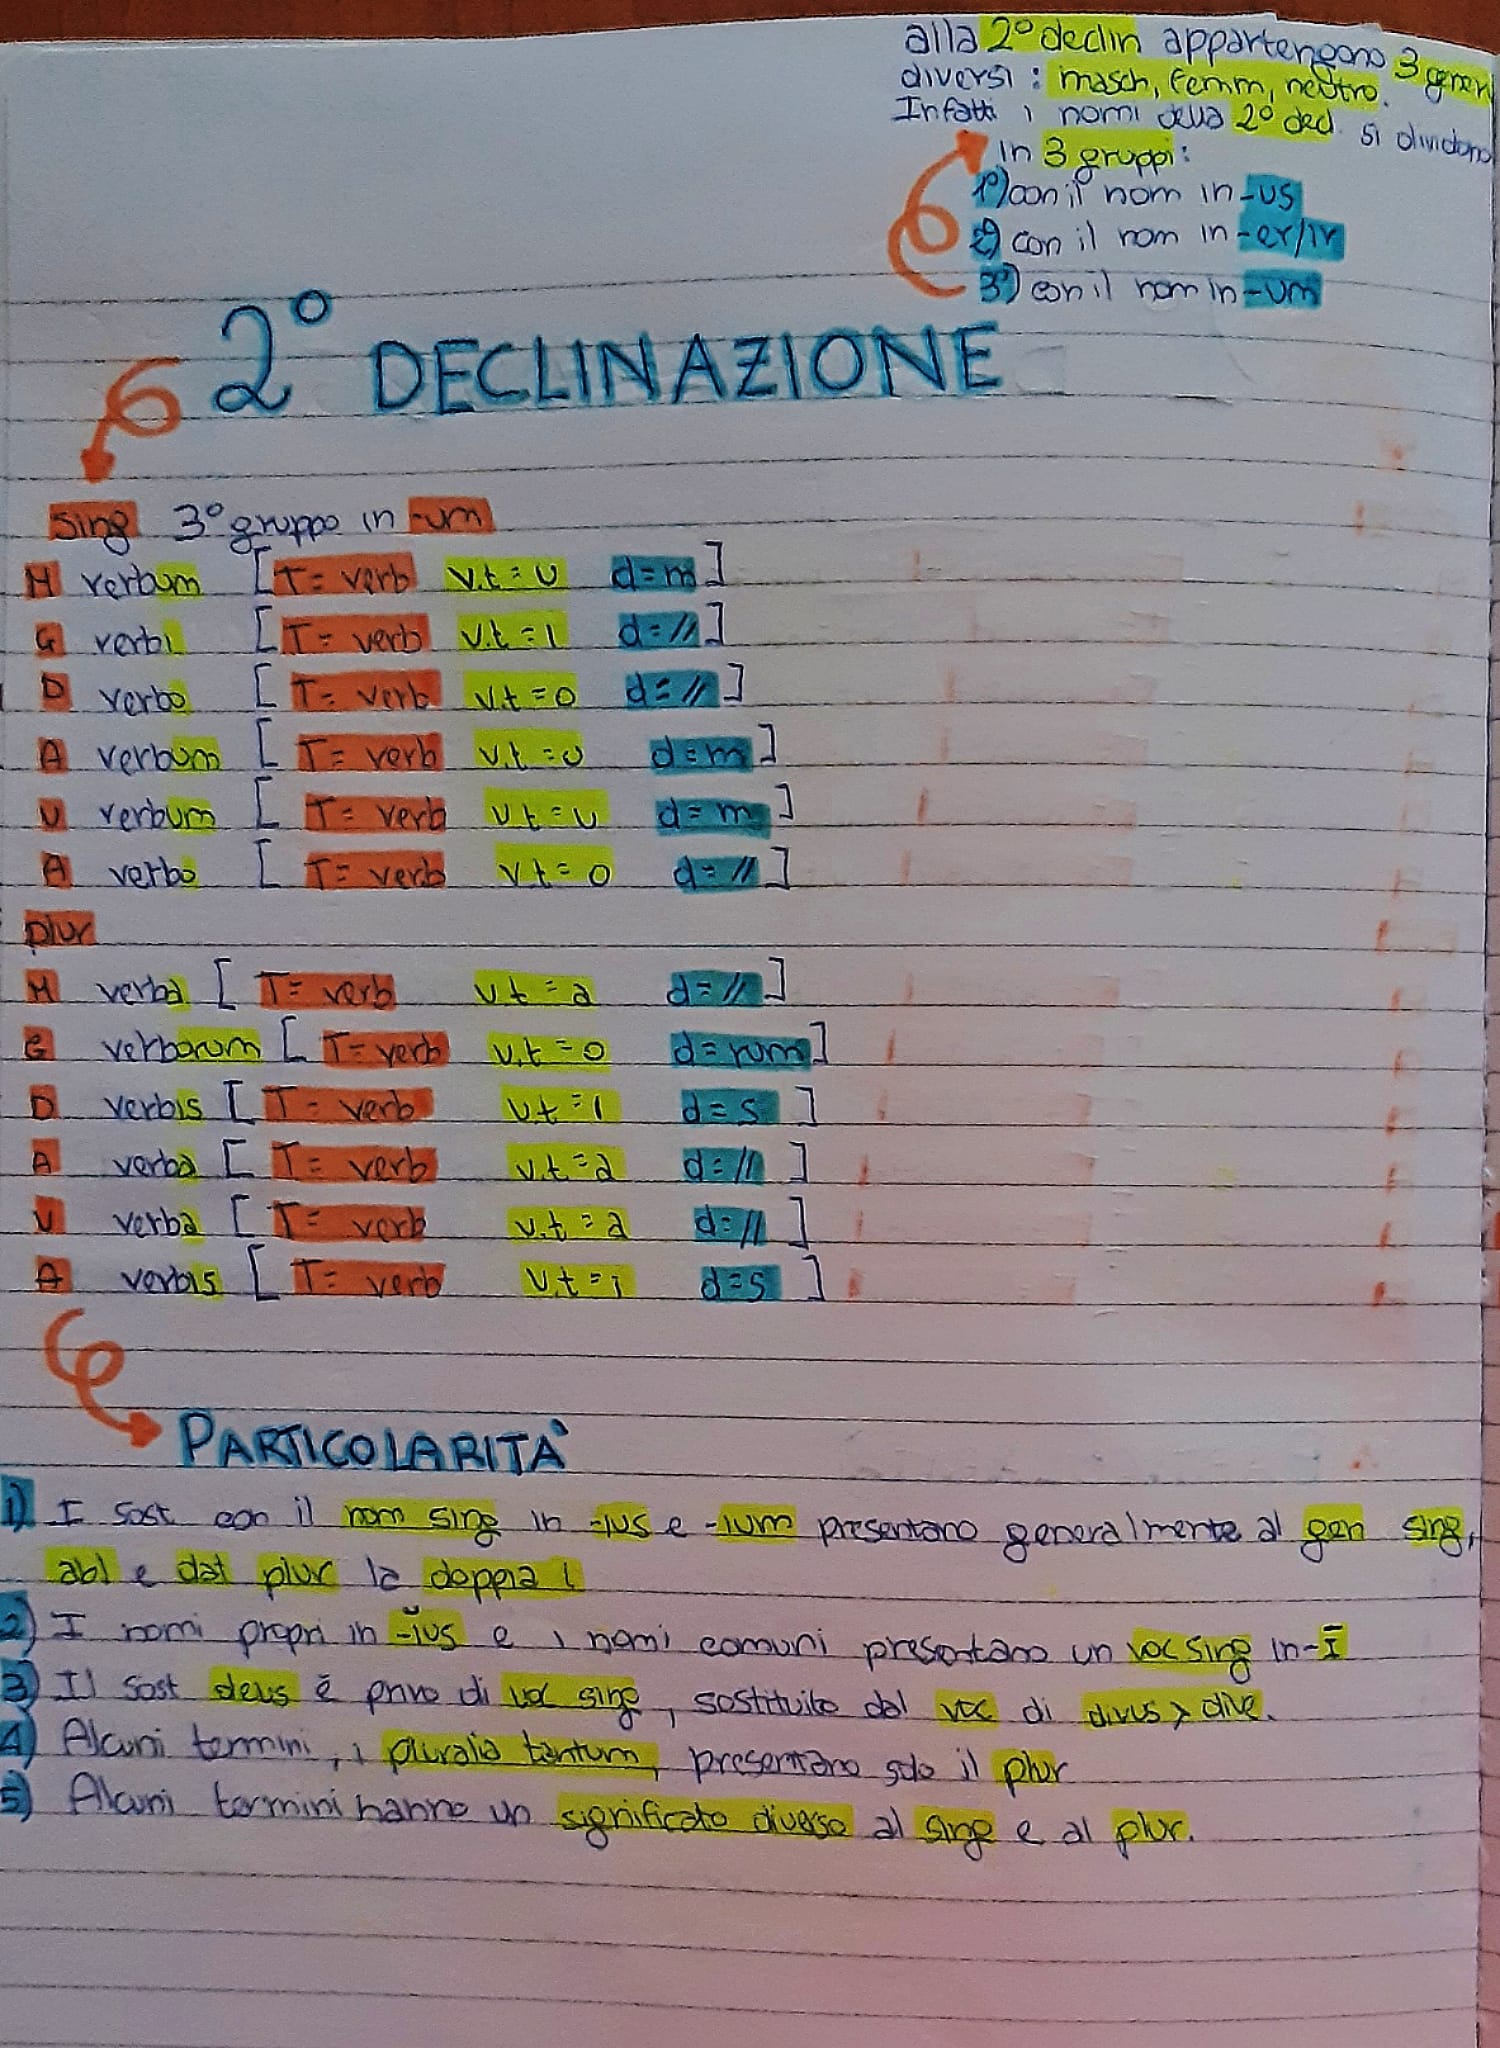 alla 2° declin appartengono 3 generi
diversi : masch, femm, neutro.
Infatti i nomi della 2° decl. si dividono
in 3 gruppi:
1°) con il nom in -us
2°) con il nom in -er/ir
3°) con il nom in -um
2° DECLINAZIONE
sing 3° gruppo in -um
N verbum [T= verb v.t = u d = m]
G verbi [T= verb v.t = i d = //]
D verbo [T= verb v.t = o d = //]
A verbum [T= verb v.t = u d = m]
V verbum [T= verb v.t = u d = m]
A verbo [T= verb v.t = o d = //]
plur
N verba [T= verb v.t = a d = //]
G verborum [T= verb v.t = o d = rum]
D verbis [T= verb v.t = i d = s]
A verba [T= verb v.t = a d = //]
V verba [T= verb v.t = a d = //]
A verbis [T= verb v.t = i d = s]
PARTICOLARITÀ
1) I sost con il nom sing in -ius e -ium presentano generalmente al gen sing,
abl e dat plur la doppia i
2) I nomi propri in -ĭus e i nomi comuni presentano un voc sing in -ī
3) Il sost deus è privo di voc sing, sostituito dal voc di divus > dive.
4) Alcuni termini, i pluralia tantum, presentano solo il plur
5) Alcuni termini hanno un significato diverso al sing e al plur.